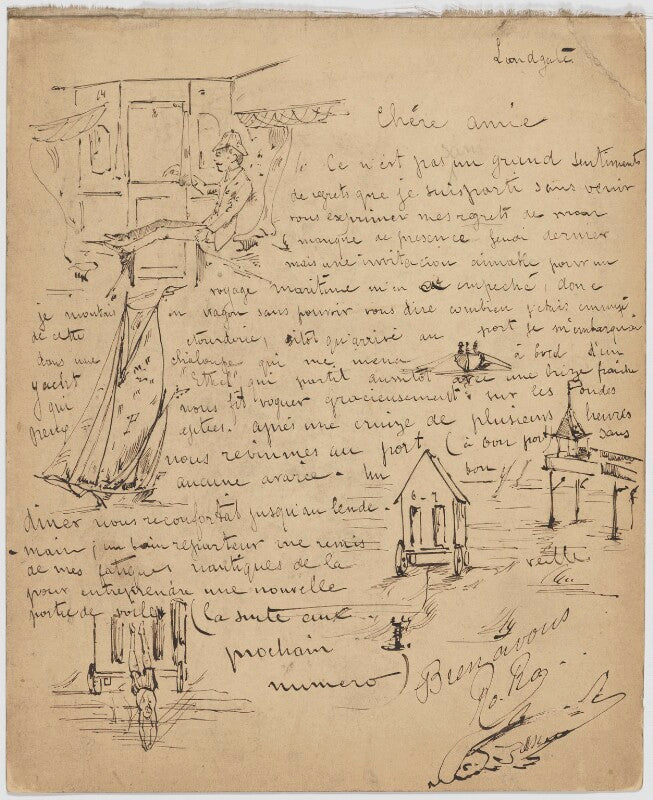 Chère amie
Ce n'est pas un grand sentiments
de regrets que je suis parti sans venir
vous exprimer mes regrets de mon
manque de presence jeudi dernier
mais une invitacion aimable pour un
voyage maritime m'en a empeché, donc
je montai en wagon sans pouvoir vous dire combien j'etais
de cette etourderie, sitot qu'arrivé au port je m'embarquai
dans une chaloupe qui me mena à bord d'un
yacht "Ethel" qui partit aussitot avec une brize fraiche
qui nous fit voguer gracieusement sur les ondes
après une cruize de plusieurs heures
nous revinmes au port (à bon port) sans
aucune avarie. Un bon
diner nous reconfortat jusqu'au lende-
main, un bain reparteur me remis
de mes fatigues nautiques de la veille
pour entreprendre une nouvelle
partie de voile (la suite au
prochain
numero)
Bien a vous
64
6-7